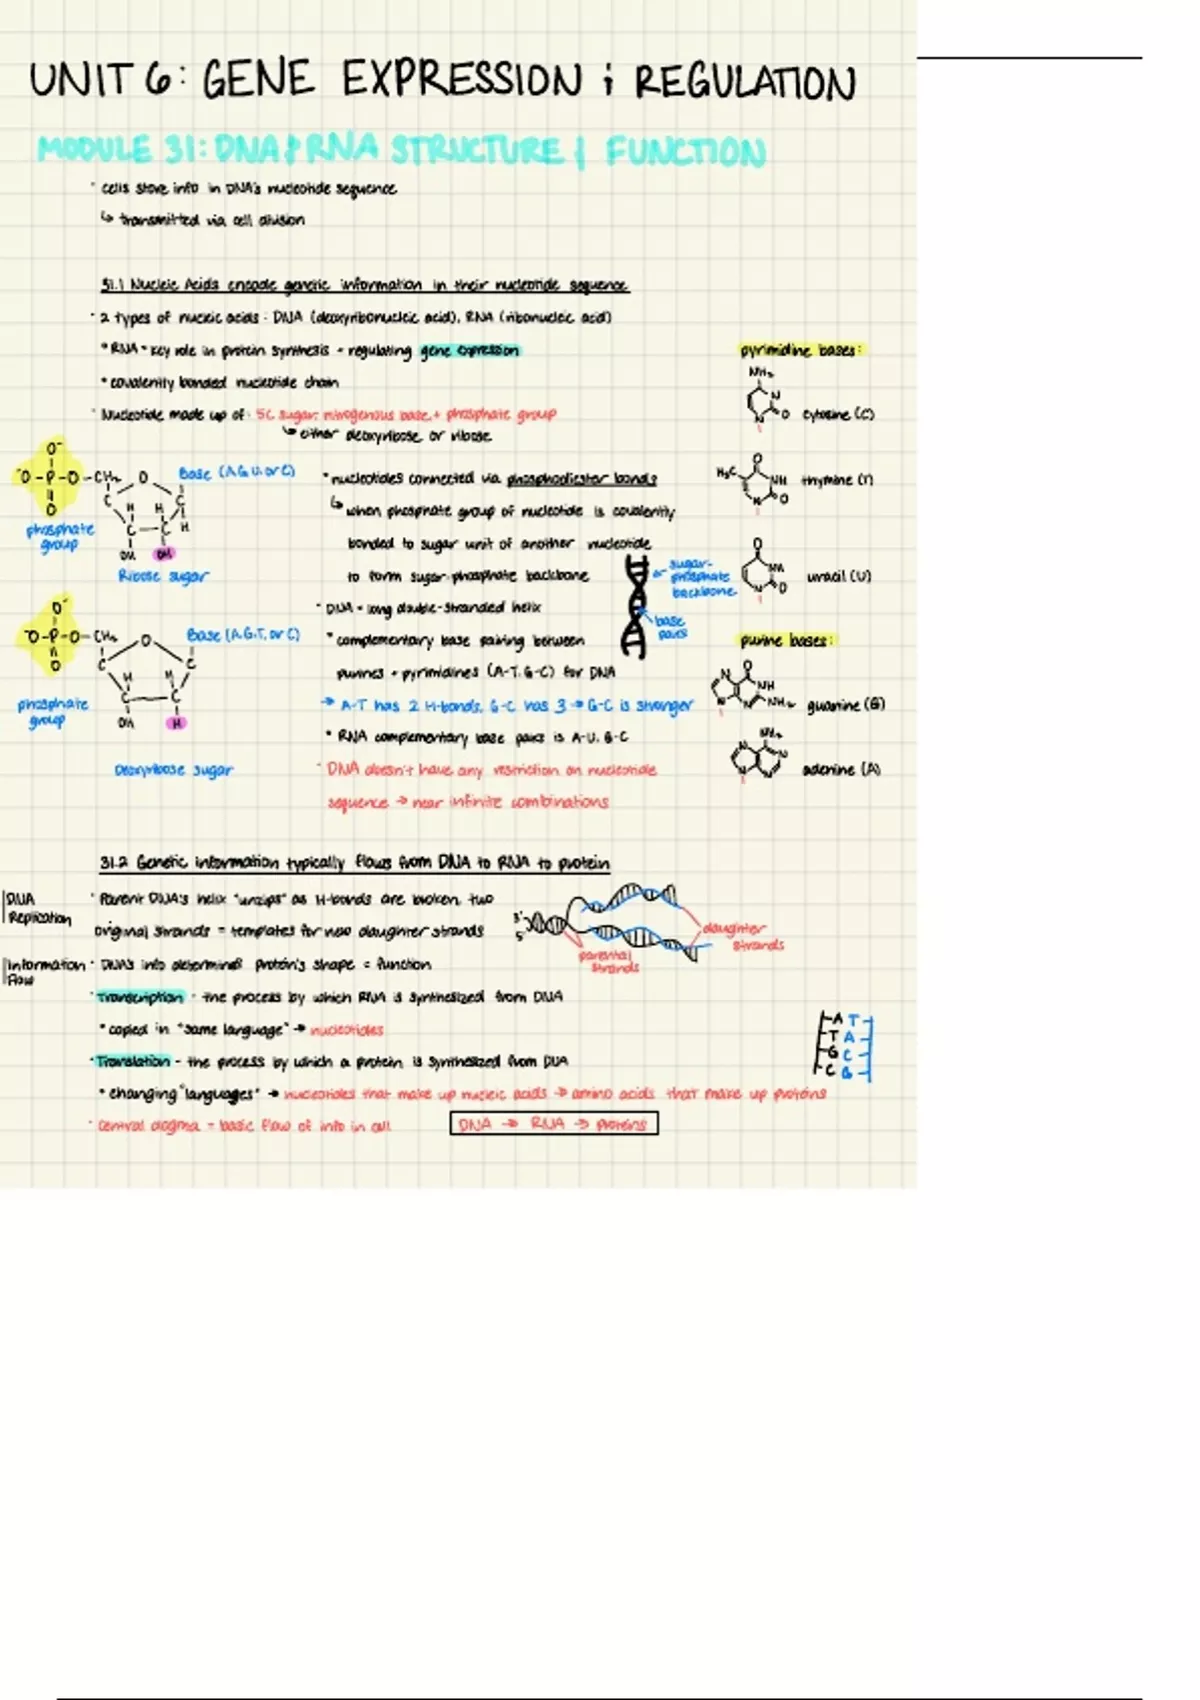 UNIT 6: GENE EXPRESSION & REGULATION
MODULE 31: DNA & RNA STRUCTURE & FUNCTION
• cells store info in DNA's nucleotide sequence
↳ transmitted via cell division
31.1 Nucleic Acids encode genetic information in their nucleotide sequence
• 2 types of nucleic acids: DNA (deoxyribonucleic acid), RNA (ribonucleic acid)
* RNA = key role in protein synthesis + regulating gene expression
* covalently bonded nucleotide chain
• Nucleotide made up of: 5C sugar, nitrogenous base, + phosphate group
↳ either deoxyribose or ribose
O⁻
⁻O-P-O-CH₂ O Base (A,G,U, or C)
O
C C
H H H
C-C
OH OH
phosphate group
Ribose sugar
O⁻
⁻O-P-O-CH₂ O Base (A,G,T, or C)
O
C C
H H
C-C
OH H
phosphate group
Deoxyribose sugar
* nucleotides connected via phosphodiester bonds
↳ when phosphate group of nucleotide is covalently
bonded to sugar unit of another nucleotide
to form sugar-phosphate backbone
• DNA = long double-stranded helix
* complementary base pairing between
purines + pyrimidines (A-T, G-C) for DNA
→ A-T has 2 H-bonds, G-C has 3 → G-C is stronger
* RNA complementary base pairs is A-U, G-C
• DNA doesn't have any restriction on nucleotide
sequence → near infinite combinations
sugar-phosphate backbone
base pairs
pyrimidine bases:
NH₂
N
N O
cytosine (C)
O
H₃C NH
N O
thymine (T)
O
NH
N O
uracil (U)
purine bases:
O
N NH
N N NH₂
guanine (G)
NH₂
N N
N N
adenine (A)
31.2 Genetic information typically flows from DNA to RNA to protein
DNA Replication
• Parent DNA's helix "unzips" as H-bonds are broken, two
original strands = templates for new daughter strands
3'
5'
parental strands
daughter strands
Information flow
• DNA's info determines protein's shape + function
• Transcription - the process by which RNA is synthesized from DNA
* copied in "same language" → nucleotides
• Translation - the process by which a protein is synthesized from DUA
* changing "languages" → nucleotides that make up nucleic acids → amino acids that make up proteins
• central dogma = basic flow of info in cell
DNA → RNA → proteins
A T
T A
G C
C G